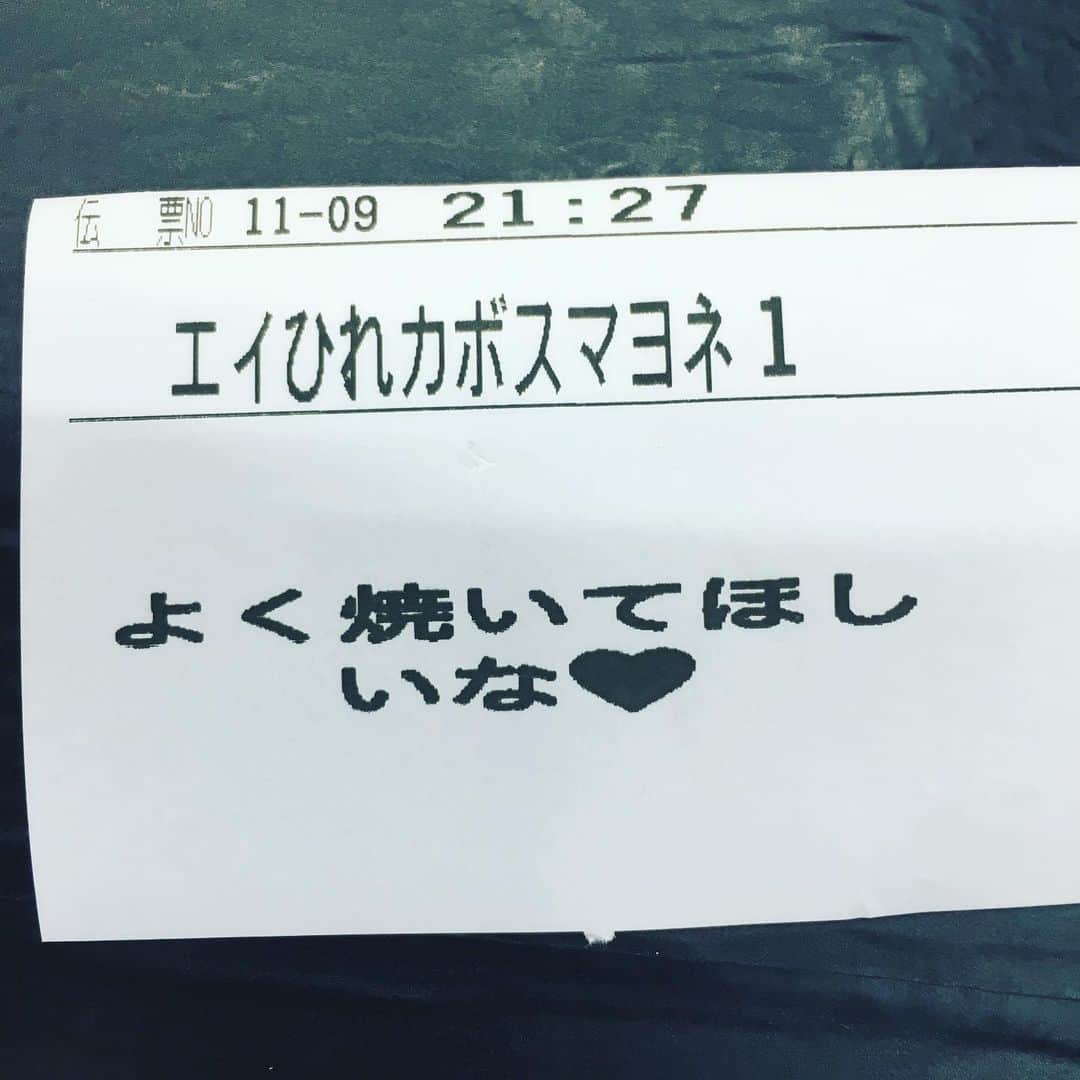 伝 票NO 11-09 21:27
エイひれカボスマヨネ1
よく焼いてほし
いな♥